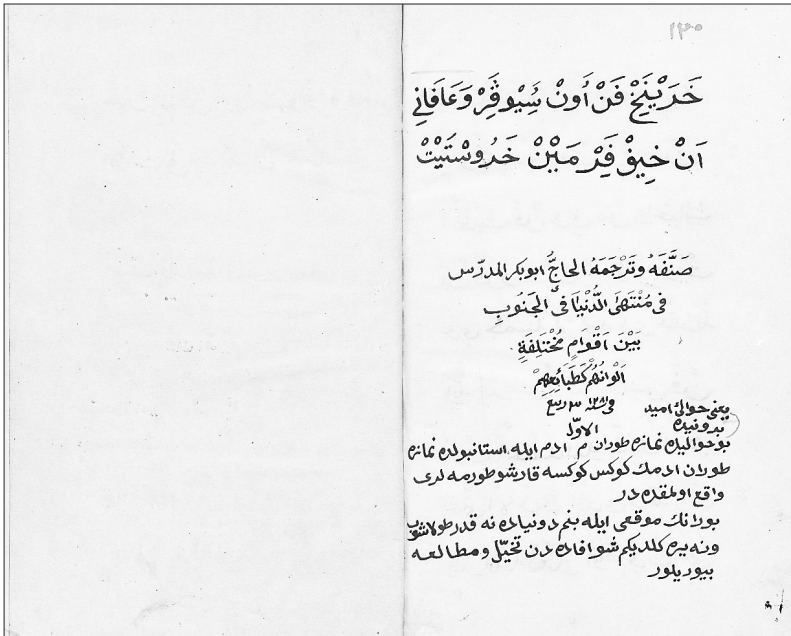 ١٣٠
خَدَيْنَخْ فَنْ أُونْ سُيْوڤِرْ وَعَافَانِي
اَنْ خِيفْ فَِرْ مَيْنْ خَدُوسْتَيْتْ
صَنَّفَهُ وَتَرْجَمَهُ الحاجُّ ابوبكر المدرّس
فى مُنْتَهَى الدُّنْيَا فى الجَنُوبِ
بَيْنَ اَقْوَامٍ مُخْتَلِفَةٍ
اَلْوَانُهُمْ كَطَبَائِعِهِمْ
فى سنة ربيع
الاوّل
يعنى حوالئ اميد
بوحواليده نمازه طوران م ادم ايله استانبولده نمازه
طوران ادمك كوكس كوكسه قارشو طورمه لرى
واقع اولمقده در
بورانك موقعى ايله بنم دونياده نه قدر طولاشوب
ونه يره كلديكم شو افاده دن تخيّل ومطالعه
بيوريلور